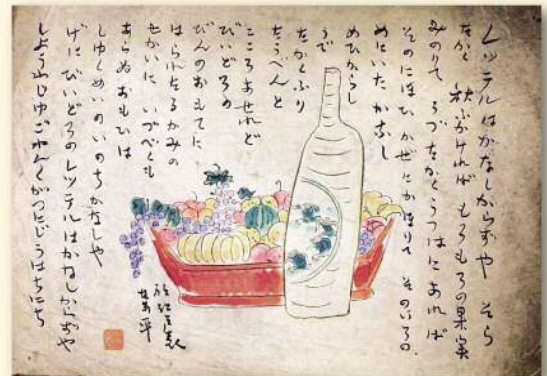 レッテルはかなしからずや　そら
たかく　秋ふかければ　もろもろの果実
みのりて　うづたかくうつはにあれば
そのにほひ　かぜにかほりて　そのいろの
めにいたかなし
めひからし
うで
たかくふり
たうべんと
こころあせれど
びいどろの
びんのおもてに
はられたるかみの
せかいに　いづべくも
あらぬおもひは
しゆくめいのいのちかなしや
げにびいどろのレッテルはかなしからずや